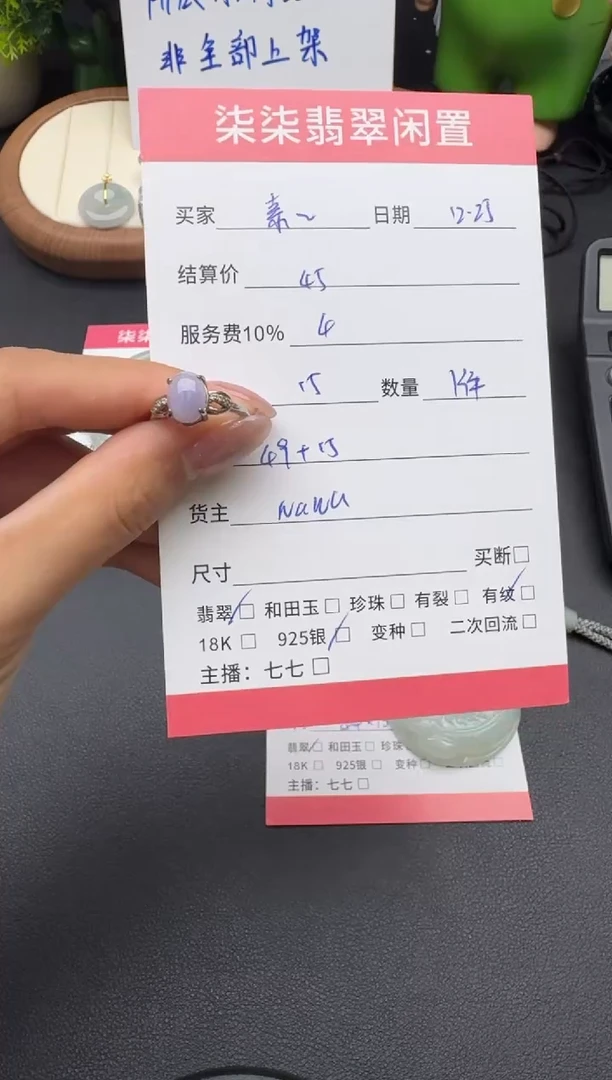 非全部上架
柒柒翡翠闲置
买家 日期 12.25
结算价 45
服务费10% 4
15 数量 1件
49+15
货主 NaNa
尺寸 买断□
翡翠□ 和田玉□ 珍珠□ 有裂□ 有纹□
18K□ 925银□ 变种□ 二次回流□
主播：七七□
柒柒
翡翠□ 和田玉□ 珍珠
18K□ 925银□ 变种□
主播：七七□